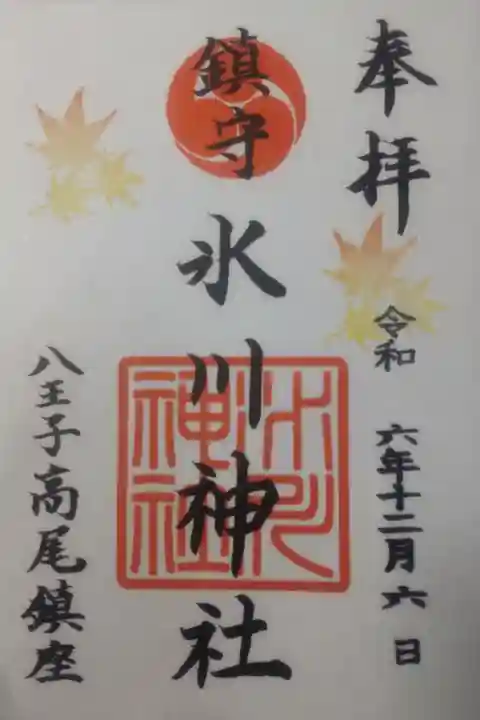 奉拝
令和 六年十二月六日
鎮守 氷川神社
氷川
神社
八王子高尾鎮座